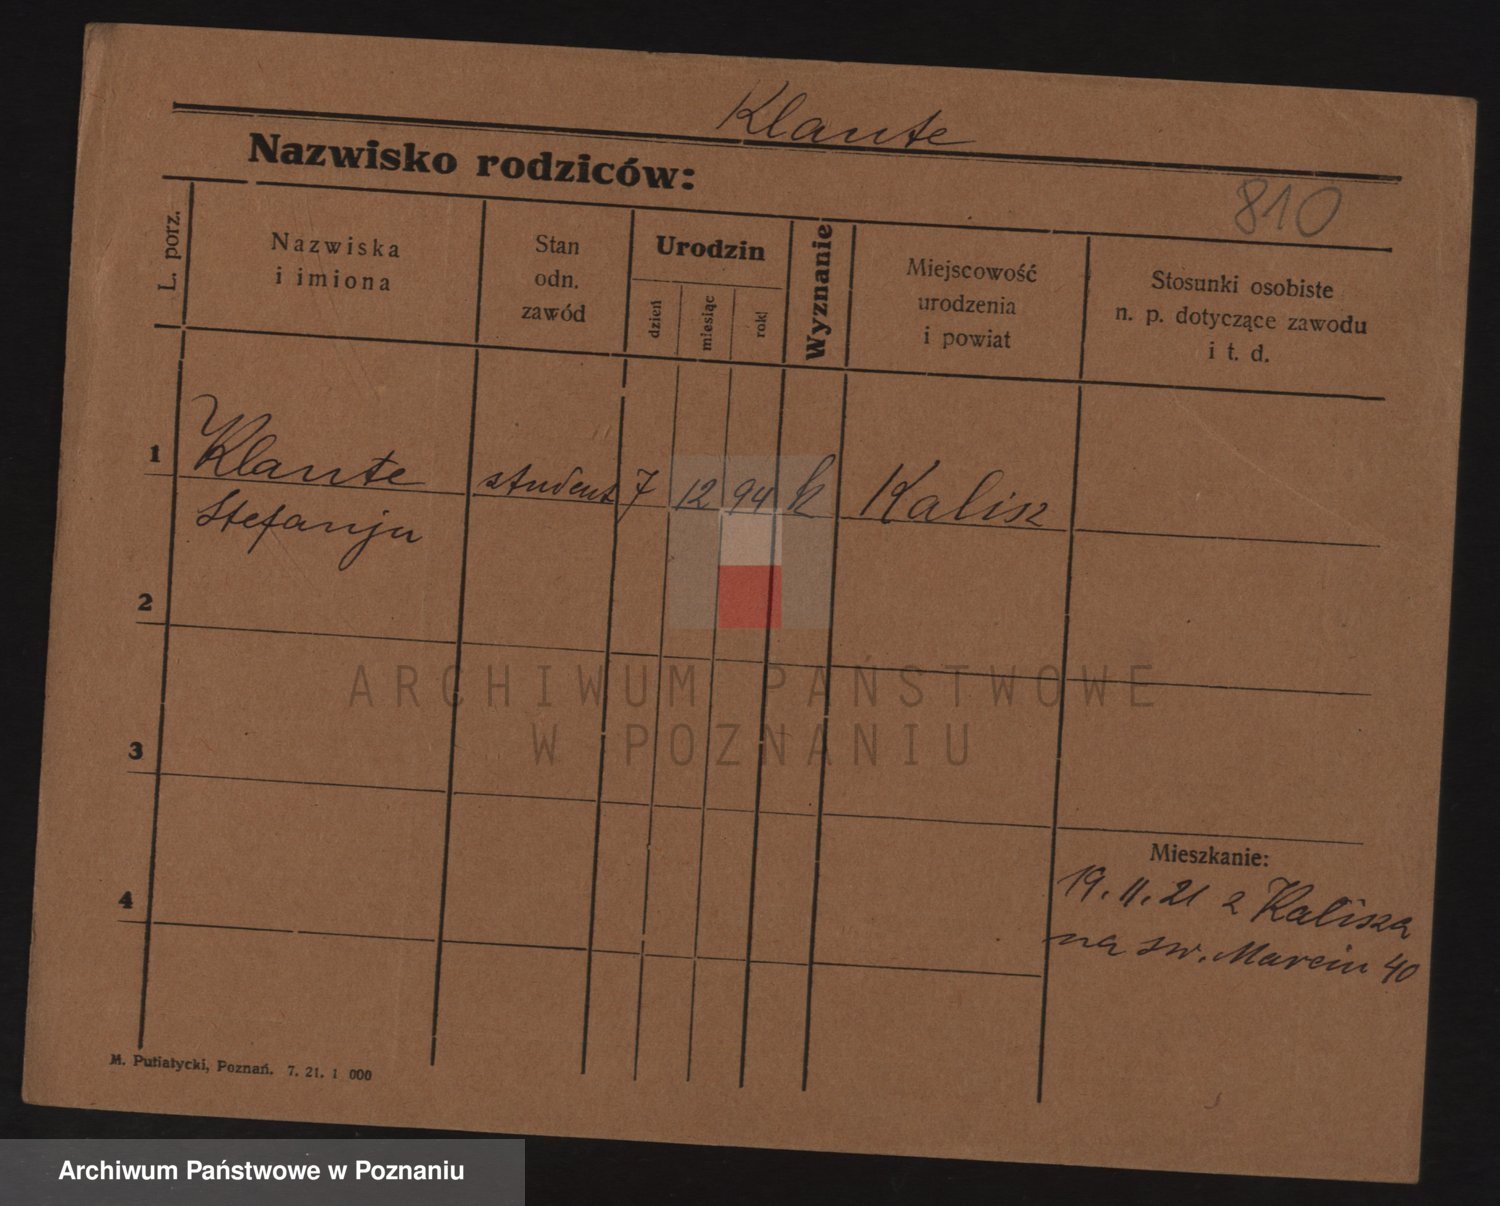 Klante
Nazwisko rodziców:
810
L. porz.
Nazwiska
i imiona
Stan
odn.
zawód
Urodzin
dzień
miesiąc
rok
Wyznanie
Miejscowość
urodzenia
i powiat
Stosunki osobiste
n. p. dotyczące zawodu
i t. d.
1
Klante student 7 12 94 k Kalisz
Stefanja
2
ARCHIWUM PAŃSTWOWE
W POZNANIU
3
Mieszkanie:
19. 11. 21 z Kalisza
na św. Marcin 40
4
M. Putiatycki, Poznań. 7. 21. 1 000
Archiwum Państwowe w Poznaniu